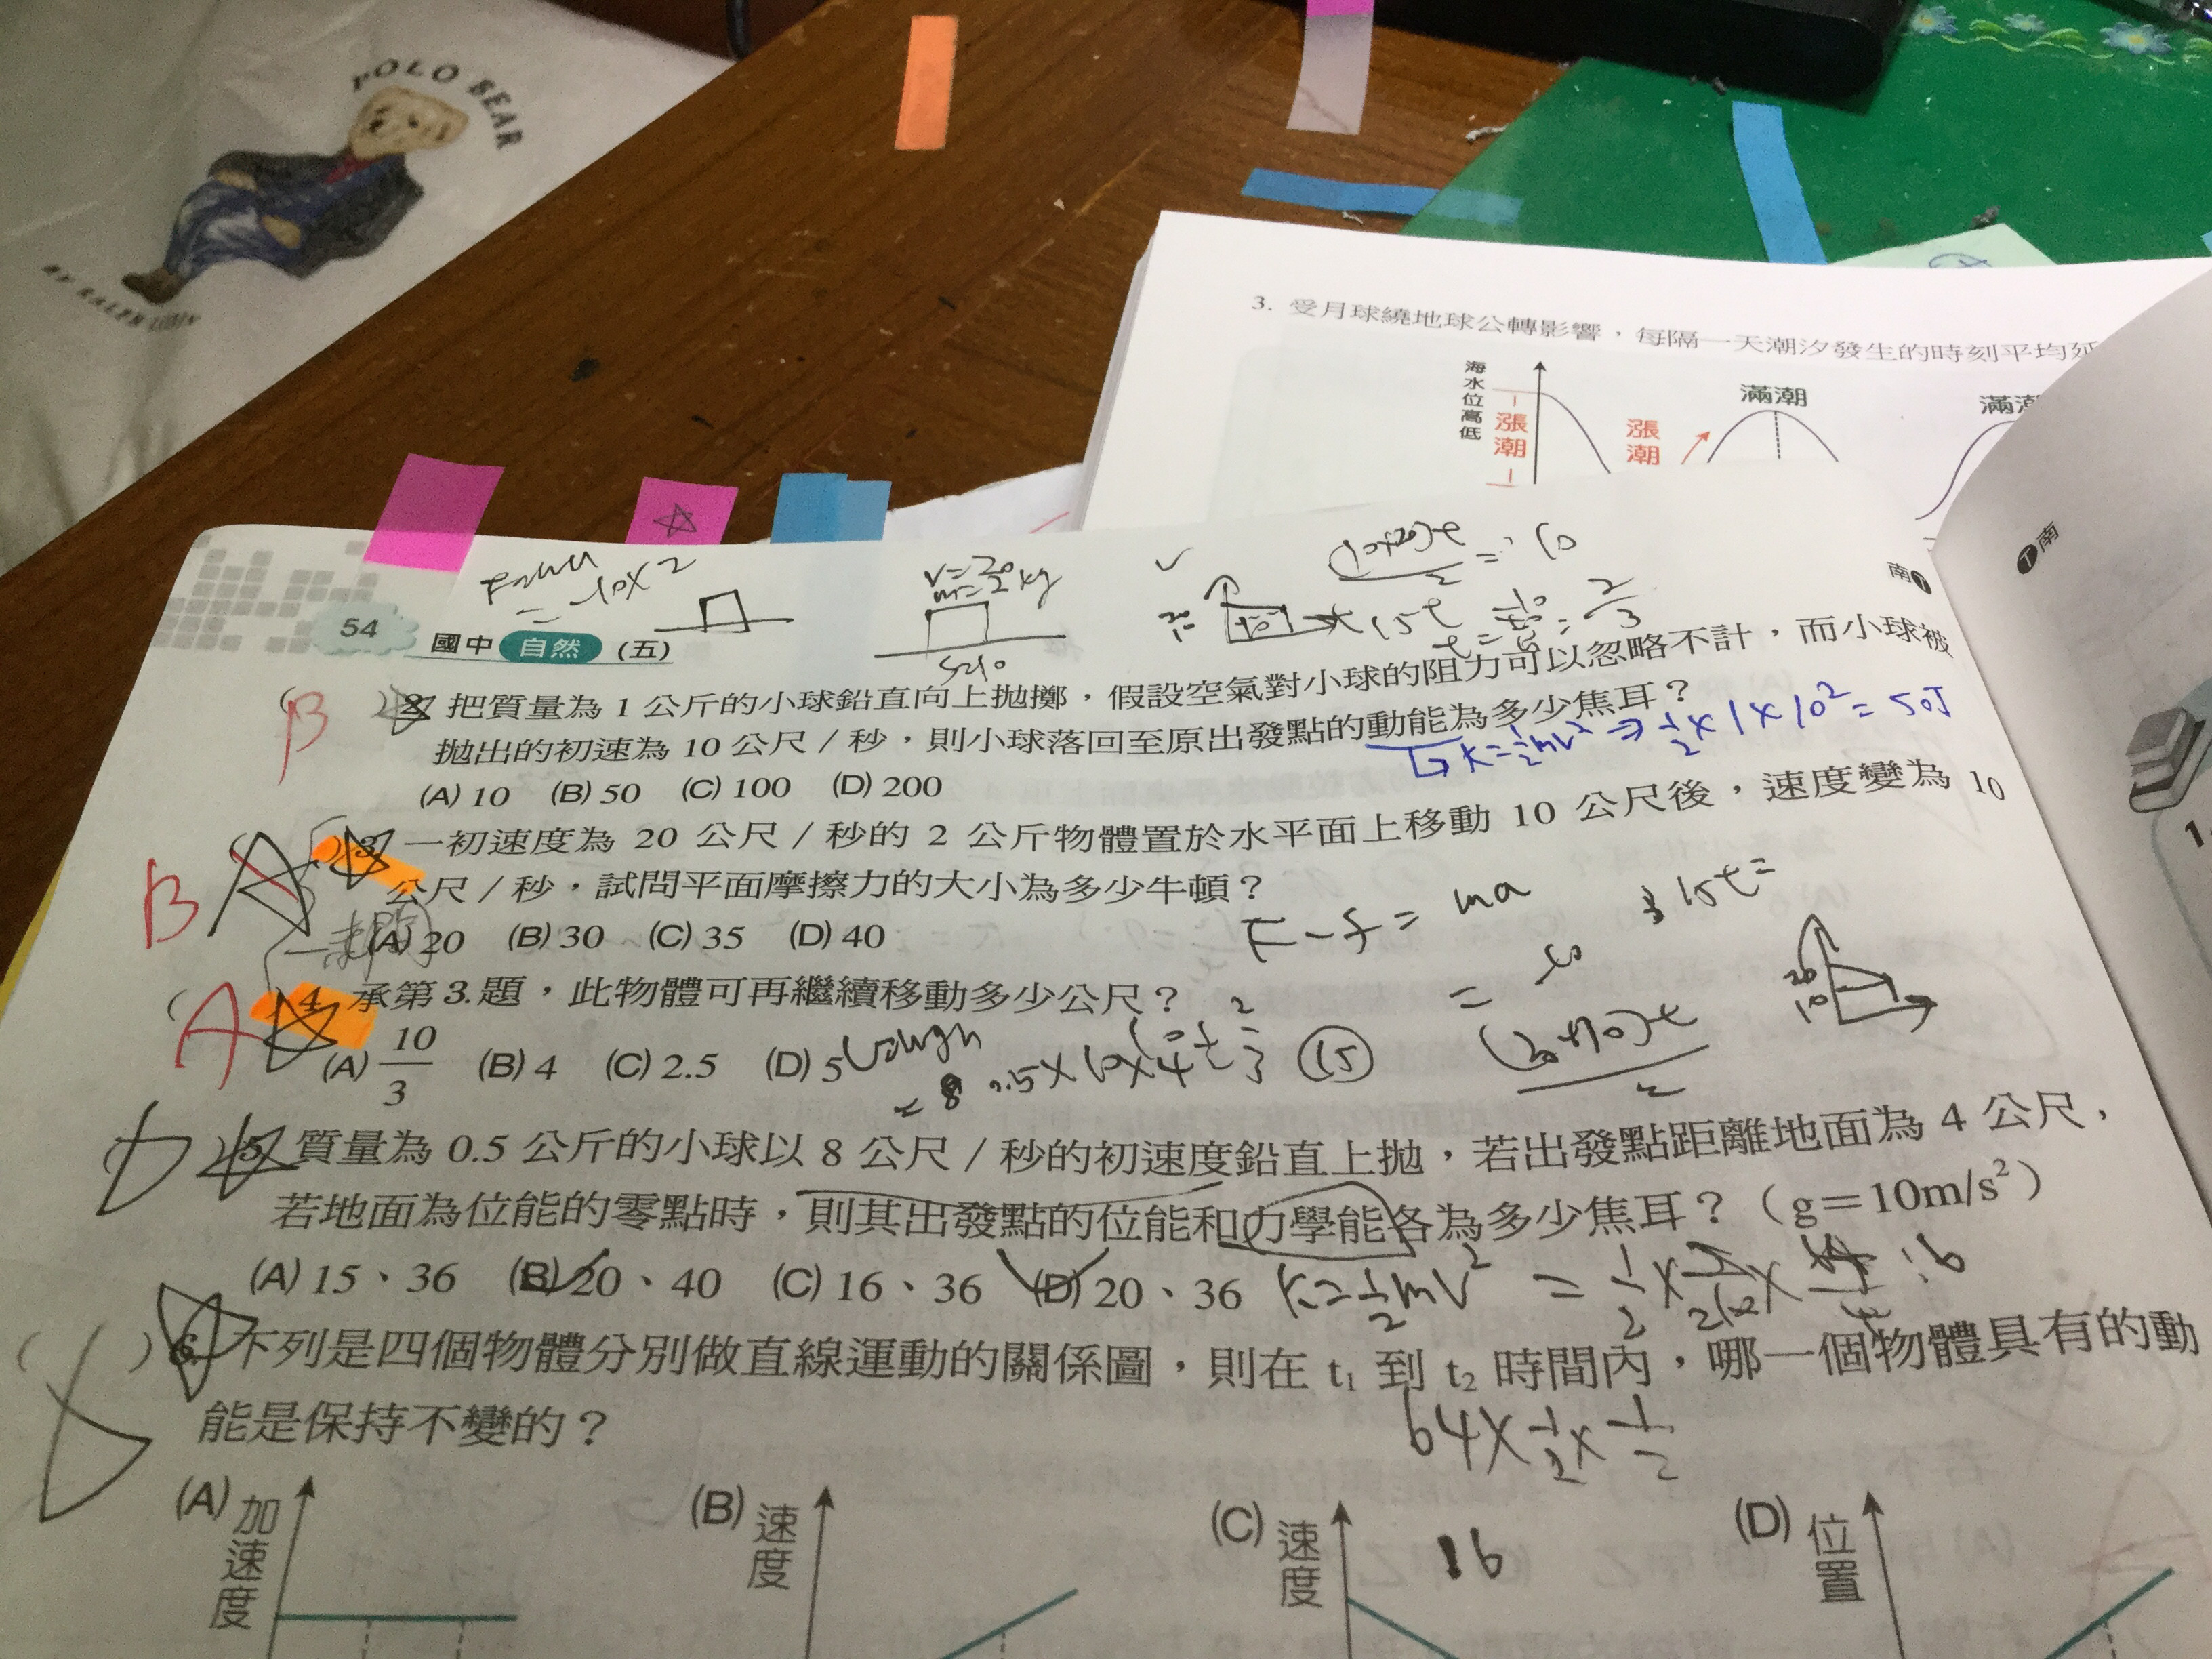 POLO BEAR
BY RALPH LAUREN
3. 受月球繞地球公轉影響，每隔一天潮汐發生的時刻平均延
海水位高低
漲潮
漲潮
滿潮
滿潮
南
南
(10+20)t/2 = 10
= -10×2
v=20
m=2kg
S=10
15t
54 國中 自然 (五)
B
2. 把質量為 1 公斤的小球鉛直向上拋擲，假設空氣對小球的阻力可以忽略不計，而小球被
拋出的初速為 10 公尺／秒，則小球落回至原出發點的動能為多少焦耳？
K=½mv² ⇒ ½×1×10²=50J
(A) 10 (B) 50 (C) 100 (D) 200
B A
3. 一初速度為 20 公尺／秒的 2 公斤物體置於水平面上移動 10 公尺後，速度變為 10
公尺／秒，試問平面摩擦力的大小為多少牛頓？
(A) 20 (B) 30 (C) 35 (D) 40
F-f=ma
15t=
A
4. 承第 3.題，此物體可再繼續移動多少公尺？
(A) 10/3 (B) 4 (C) 2.5 (D) 5
U=mgh
15
(20+10)t/2
20
10
D
5. 質量為 0.5 公斤的小球以 8 公尺／秒的初速度鉛直上拋，若出發點距離地面為 4 公尺，
若地面為位能的零點時，則其出發點的位能和力學能各為多少焦耳？（g＝10m/s²）
(A) 15、36 (B) 20、40 (C) 16、36 (D) 20、36
K=½mv²
16
D
( ) 6. 下列是四個物體分別做直線運動的關係圖，則在 t₁ 到 t₂ 時間內，哪一個物體具有的動
能是保持不變的？
64×½×½
16
(A) 加速度
(B) 速度
(C) 速度
(D) 位置